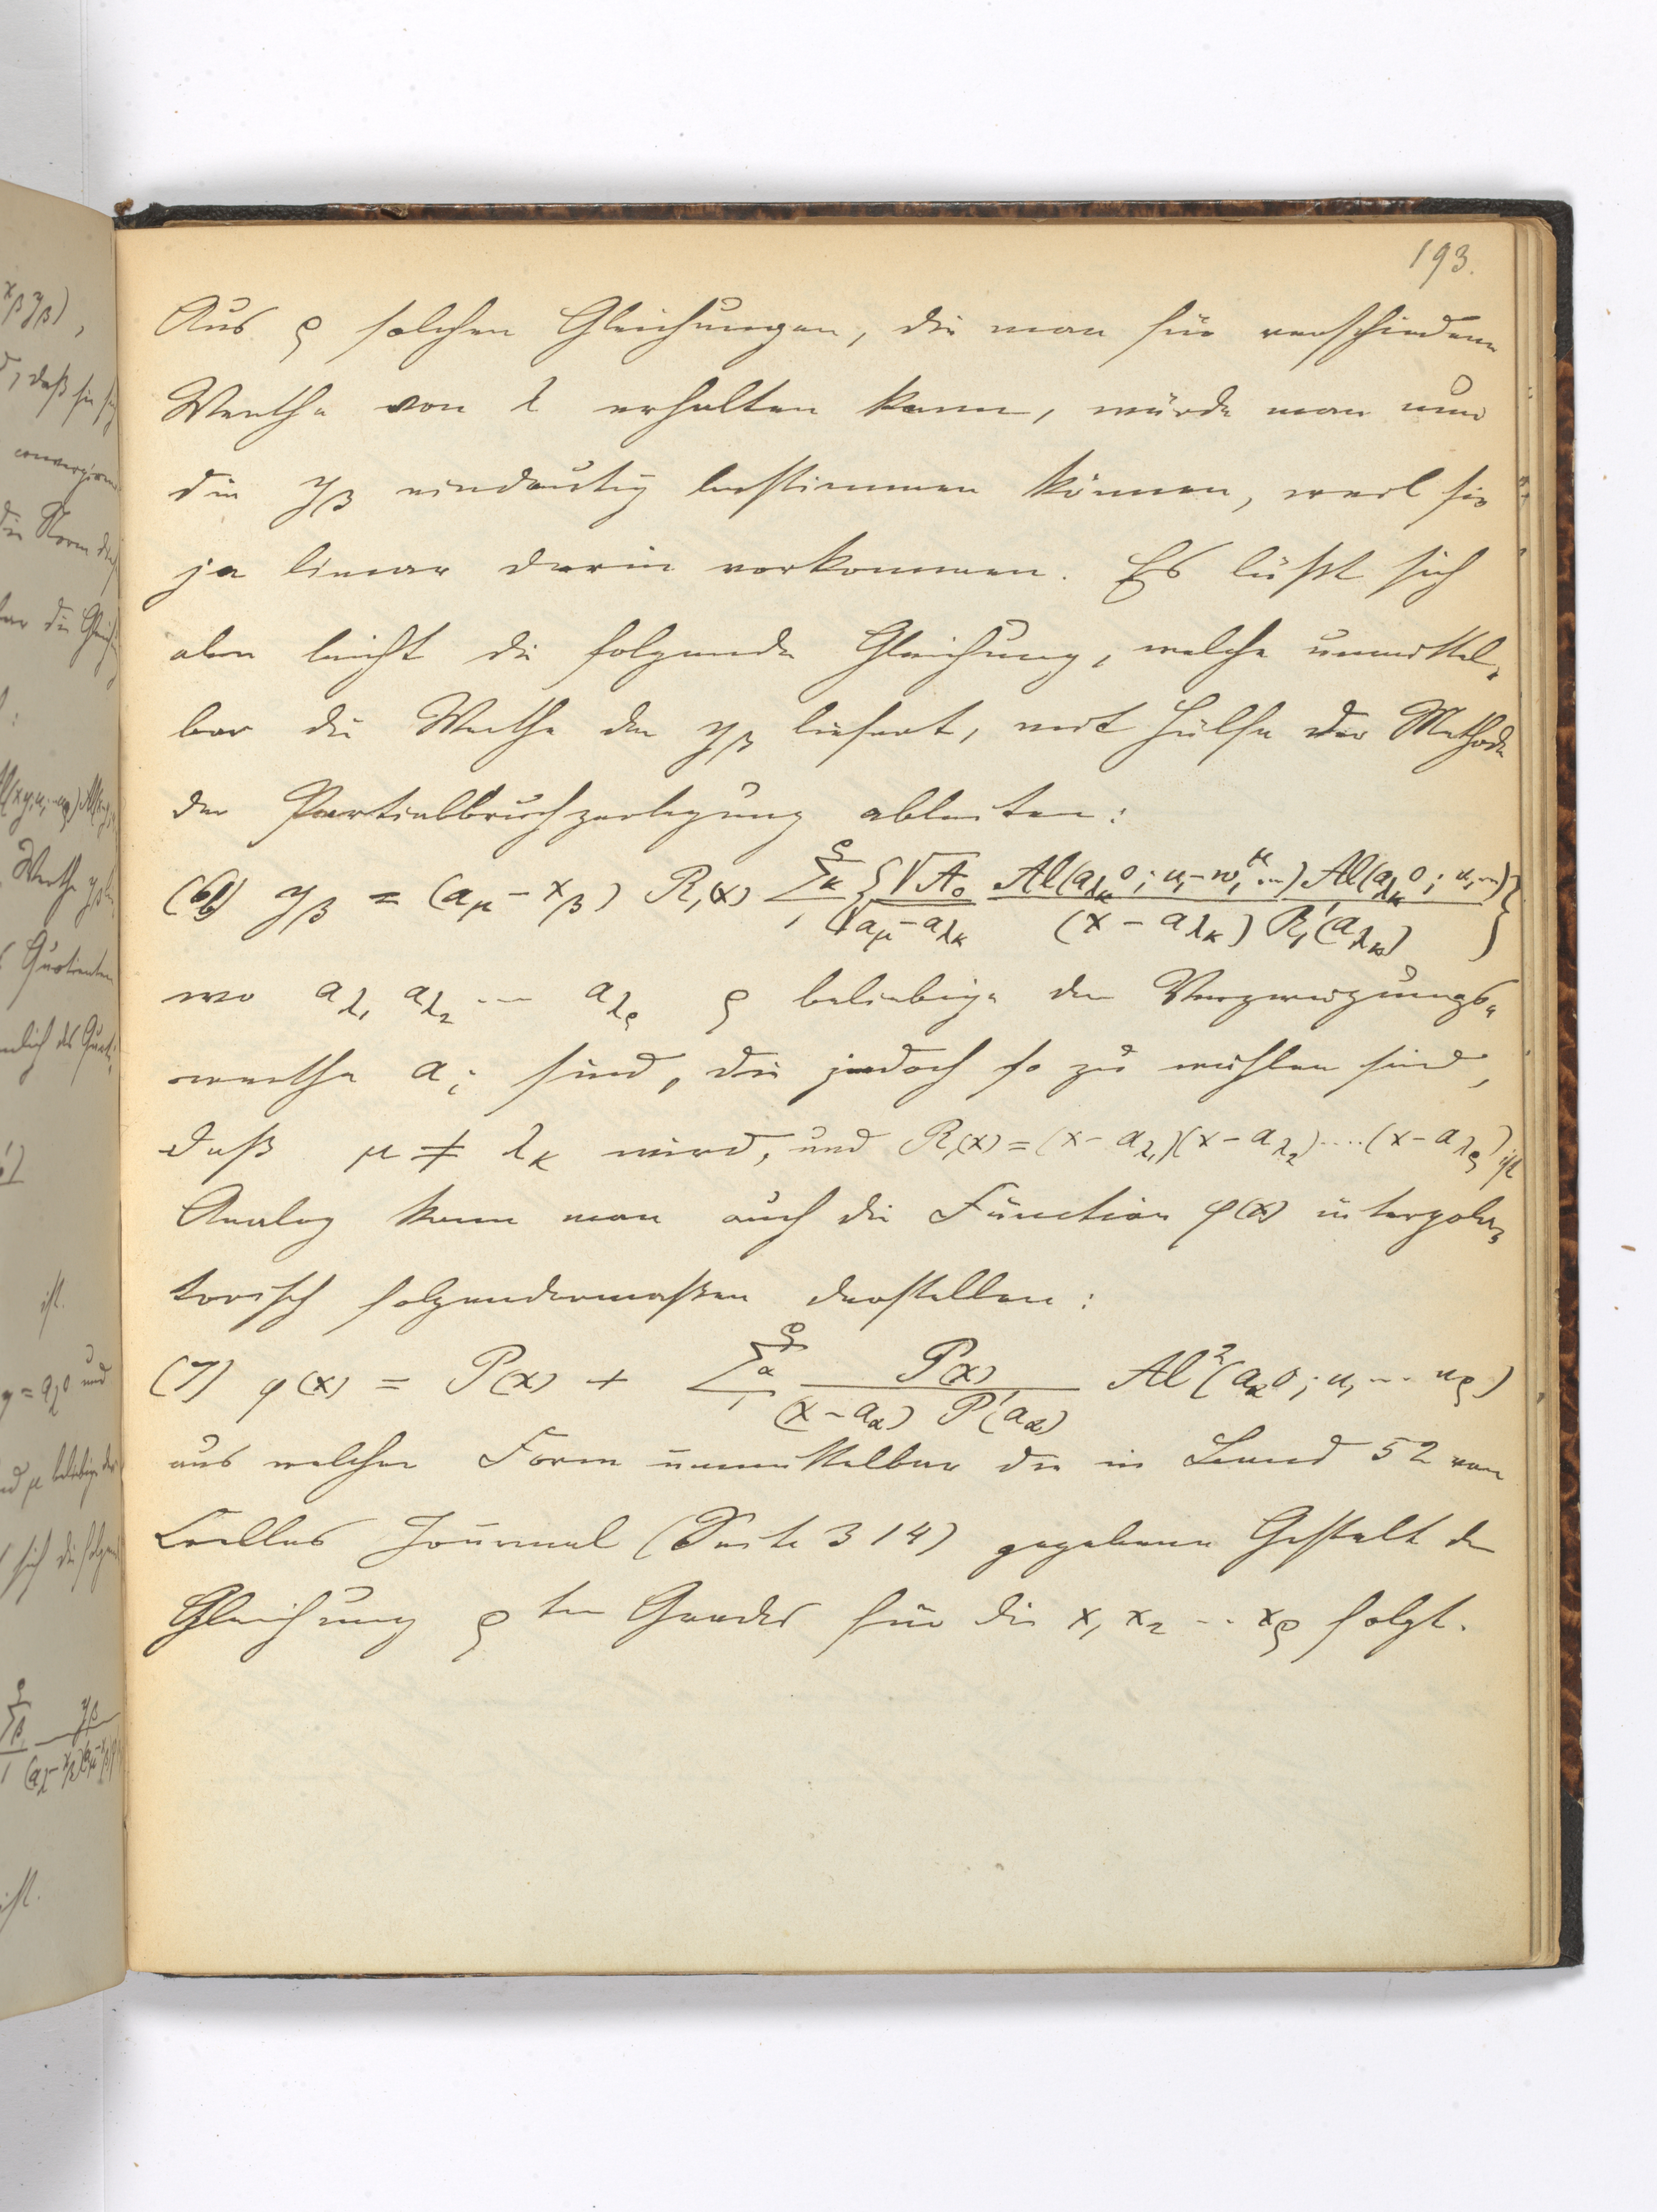 193.
Aus ϱ solchen Gleichungen, die man für verschiedene
Werthe von λ erhalten kann, würde man nun
die y_β eindeutig bestimmen können, weil sie
ja linear darin vorkommen. Es läßt sich
aber leicht die folgende Gleichung, welche unmittel-
bar die Werthe der y_β liefert, mit Hülfe der Methode
der Partialbruchzerlegung ableiten:
(6) y_β = (a_μ − x_β) R_1(x) Σ_κ {√A_0 / √(a_μ − a_λκ) · Al(a_λκ 0; u_1 − w_1^μ ...) Al(a_λκ 0; u_1 ...) / (x − a_λκ) R_1'(a_λκ)}
wo a_λ1 a_λ2 ... a_λϱ ϱ beliebige der Verzweigungs-
werthe a_i sind, die jedoch so zu wählen sind,
daß μ ≠ λ_κ wird, und R_1(x) = (x − a_λ1)(x − a_λ2) .... (x − a_λϱ) ist
Analog kann man auch die Function φ(x) interpola-
torisch folgendermaßen darstellen:
(7) φ(x) = P(x) + Σ_α P(x) / (x − a_α) P'(a_α) Al²(a_α 0; u_1 ... u_ϱ)
aus welcher Form unmittelbar die in Band 52 von
Crelles Journal (Seite 314) gegebene Gestalt der
Gleichung ϱ ten Grades für die x_1 x_2 .. x_ϱ folgt.